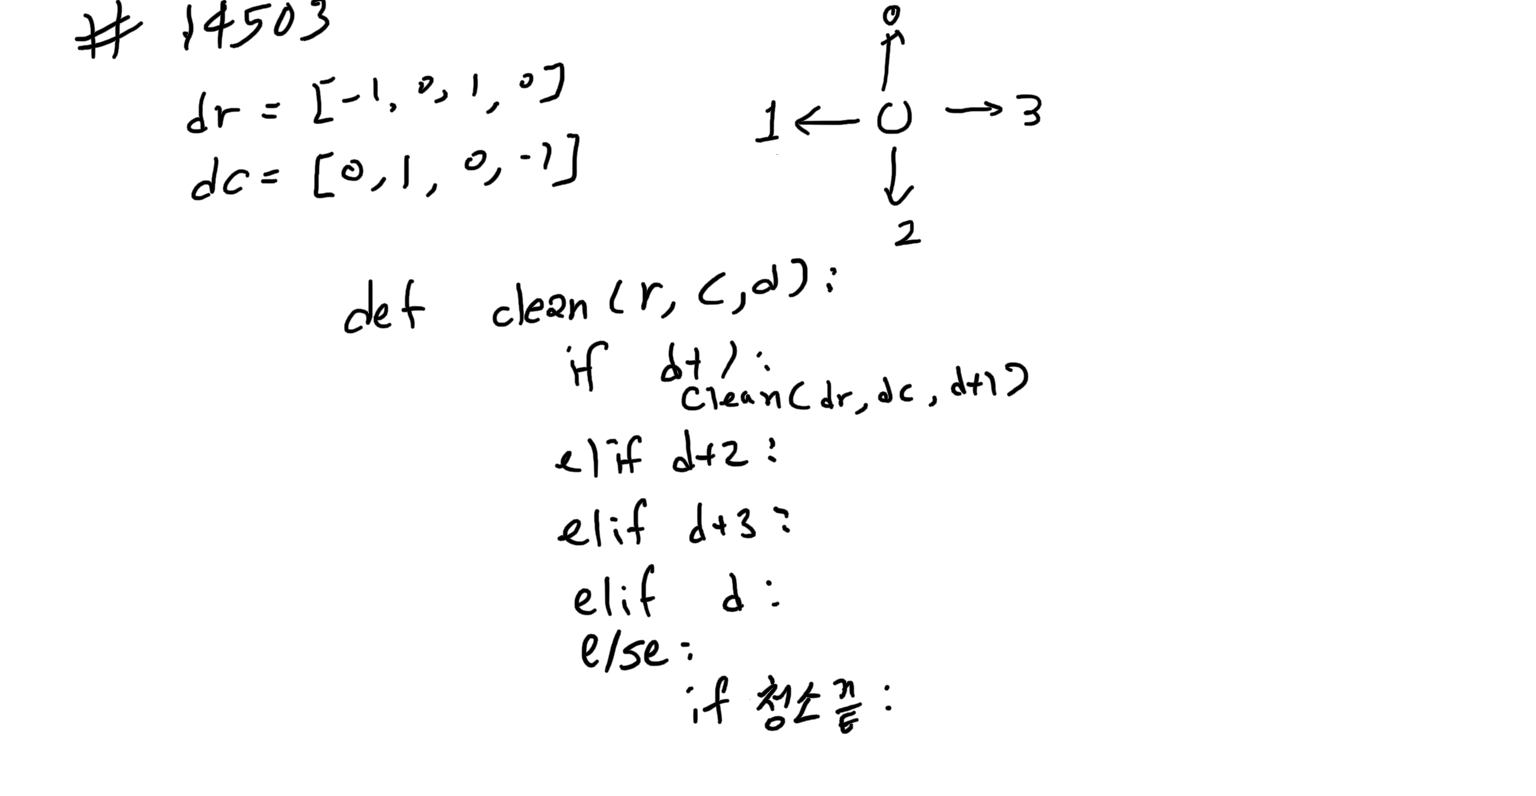 # 14503
dr = [-1, 0, 1, 0]
dc = [0, 1, 0, -1]
0
1 ← O → 3
2
def clean(r, c, d):
if d+1:
clean(dr, dc, d+1)
elif d+2:
elif d+3:
elif d:
else:
if 청소